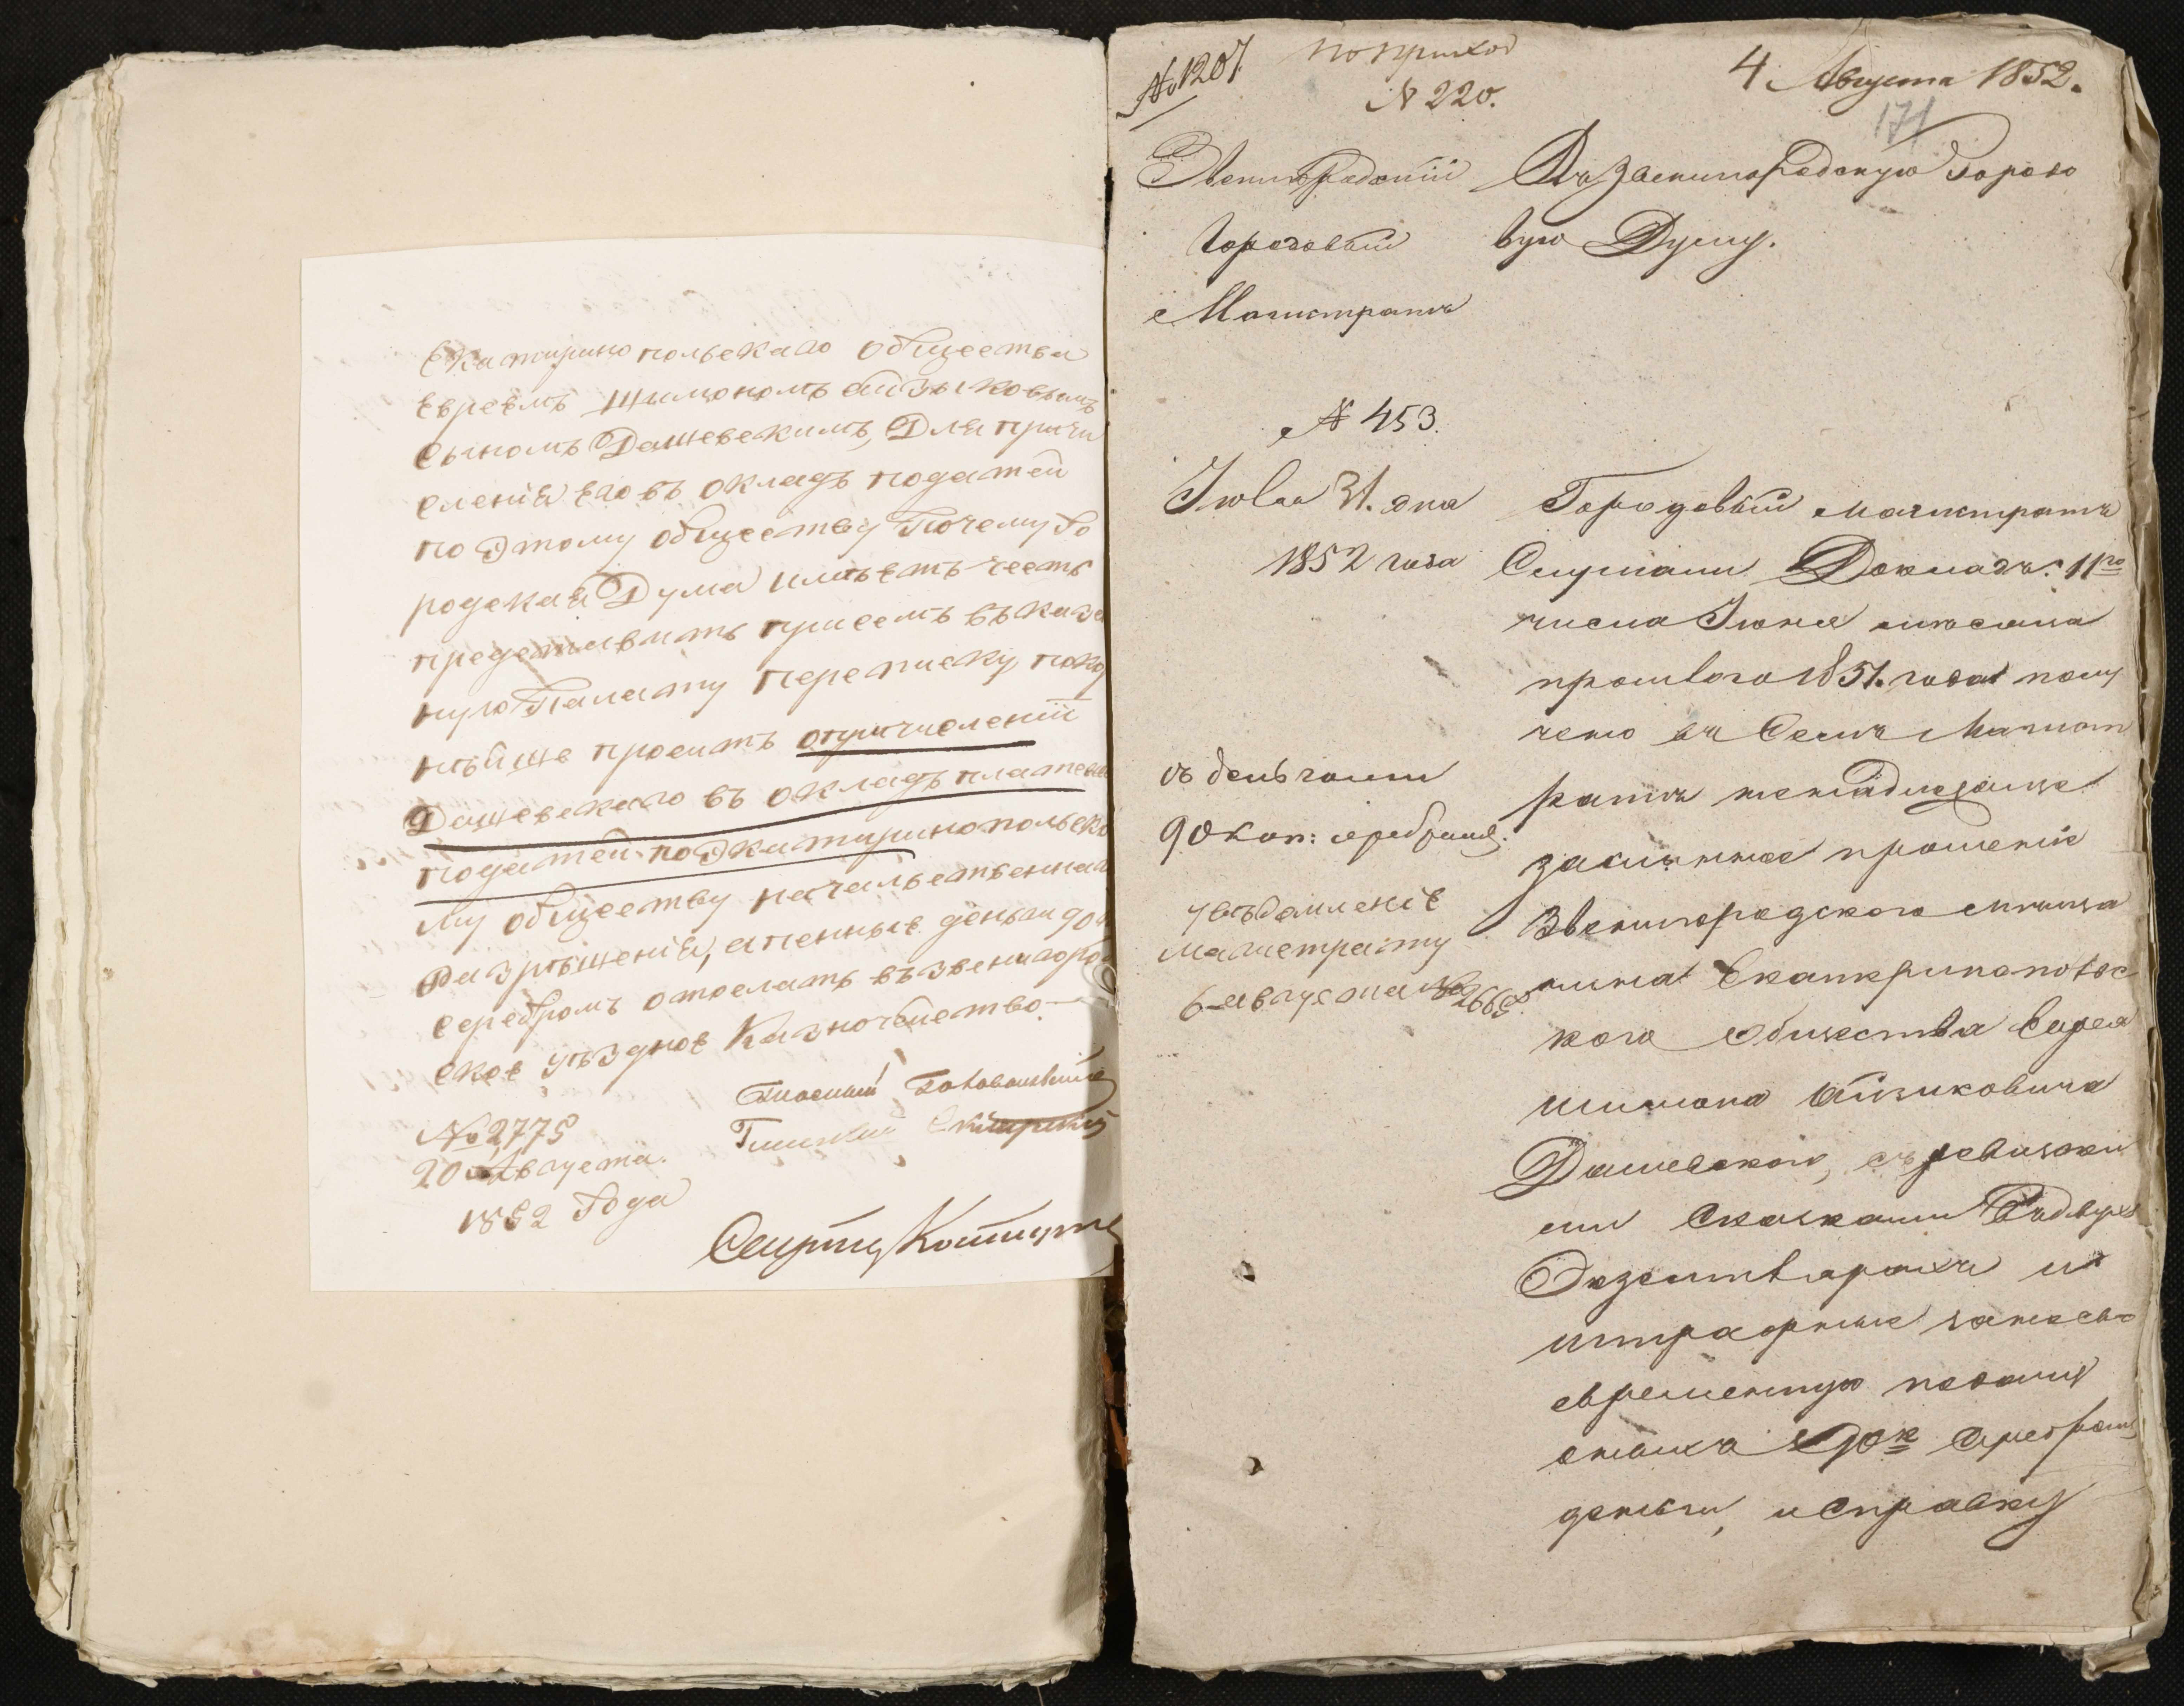 Екатиринопольскаго общества
Евреемъ Шимономъ Айзыковымъ
сыномъ Дашевскимъ, Для причи
сленія его въ окладъ податей
по Этому обществу Почему Го
родская Дума имѣетъ честь
представить присемъ въ Казен
ную Палату переписку, поко
нѣйше проситъ опричисленіи
Дашевскаго въ окладъ платежа
податей по Экатиринопольско
му обществу начальственнаго
Разрѣшенія, апенные деньги 90 к
серебромъ отослать въ Звенигород
ское уѣздное Казночейство.—
Гласный
Гласный
№ 2775
20 Августа.
1852 Года
№ 1207
по приход
N 220.
4 Августа 1852.
171
Звенигородскій
Городовый
Магистратъ
Въ Звенигородскую Горото
вую Думу.
N 453.
Іюля 31. дня
1852 года
съ деньгами
90 коп: серебромъ.
увѣдомленіе
магистрату
6 августа № 2668.
Городовый магистратъ
Слушали Докладъ: 11го
числа Іюня мѣсяца
прошлаго 1851. года полу
чено въ Семъ Магист
ратѣ
прошеніе
Звенигородского мѣща
нина Екатеринопольс
кого Общества Еврея
Шимона Айзиковича
Дашевского, съ ревизски
ми Сказками Въ двухъ
Экземплярахъ и
штрафные
временную подачу
оныхъ 90к Серебромъ
деньги, и Справку